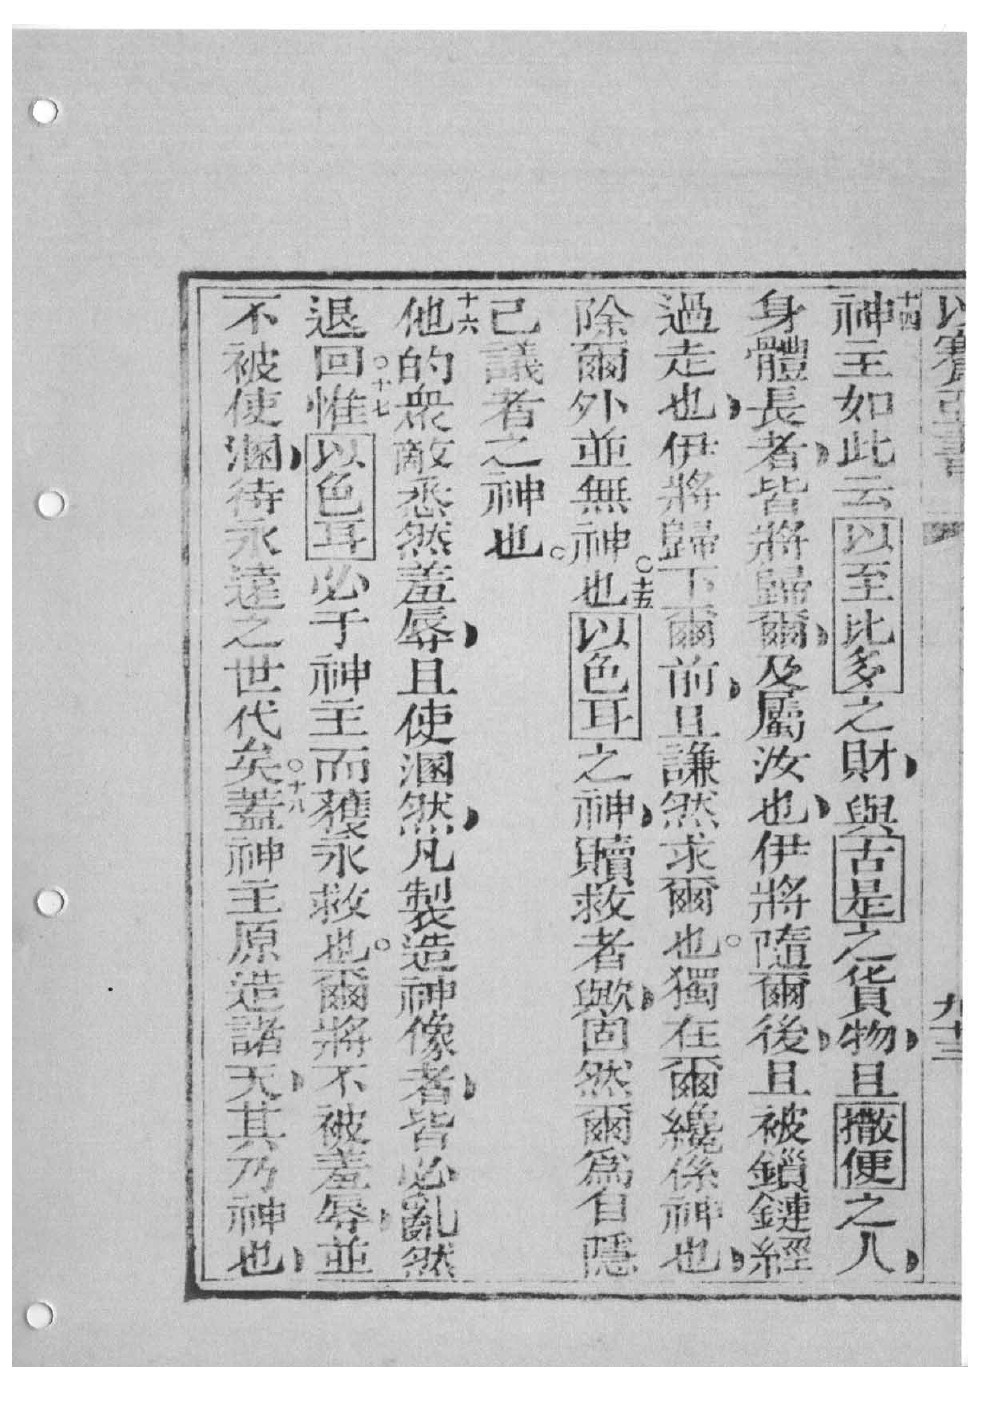 以賽亞書 九十三
十四神主如此云以至比多之財與古是之貨物且撒便之人
身體長者皆將歸爾及屬汝也伊將隨爾後且被鎖鏈經
過走也伊將歸下爾前且謙然求爾也○獨在爾纔係神也
除爾外並無神也○十五以色耳之神贖救者歟固然爾為自隱
己議者之神也○
十六他的眾敵悉然羞辱且使溷然凡製造神像者皆必亂然
退回○十七惟以色耳必于神主而獲永救也○爾將不被羞辱並
不被使溷待永遠之世代矣○十八蓋神主原造諸天其乃神也